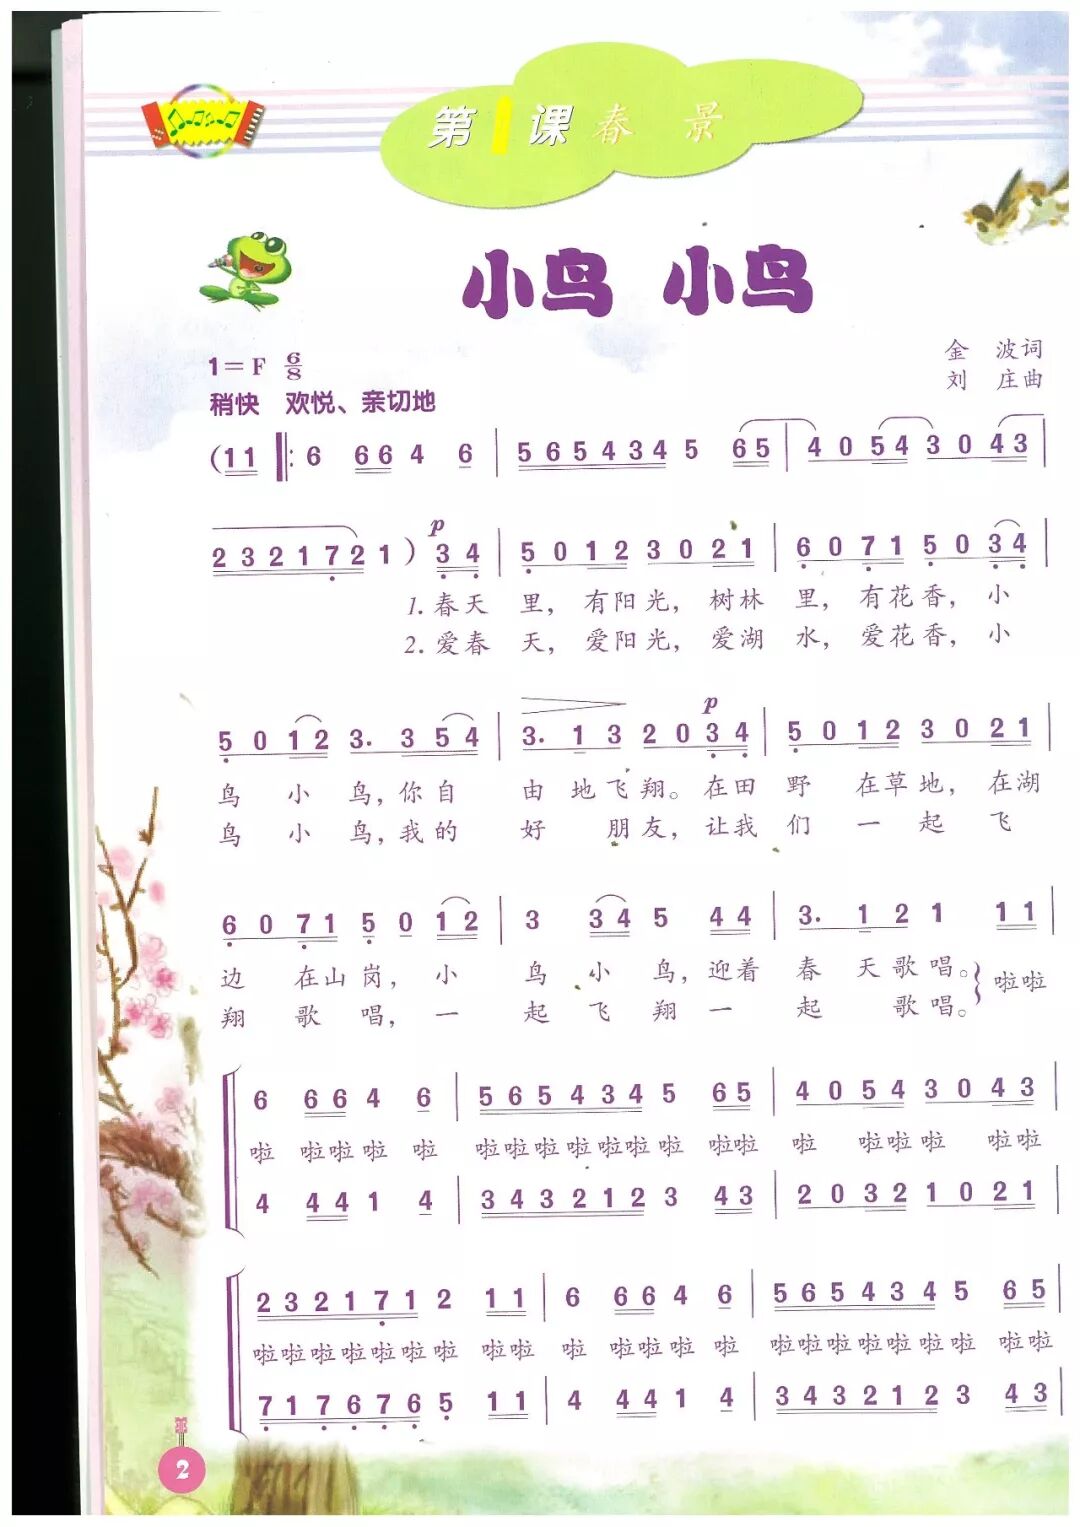 第1课 春 景
小鸟 小鸟
金 波词
刘 庄曲
1=F 6/8
稍快 欢悦、亲切地
(11 ‖: 6 66 4 6 | 565434 5 65 | 4 0 54 3 0 43 |
232172 1 ) p 34 | 5 0 12 3 0 21 | 6 0 71 5 0 34 |
1. 春天 里, 有阳光, 树林 里, 有花香, 小
2. 爱春 天, 爱阳光, 爱湖 水, 爱花香, 小
p
5 0 12 3. 3 54 | 3. 1 3 2 0 34 | 5 0 12 3 0 21 |
鸟 小 鸟, 你自 由 地飞翔。在田 野 在草地, 在湖
鸟 小 鸟, 我的 好 朋友, 让我 们 一 起 飞
6 0 71 5 0 12 | 3 34 5 44 | 3. 1 2 1 11 |
边 在山岗, 小 鸟 小 鸟, 迎着 春 天歌唱。 啦啦
翔 歌 唱, 一 起 飞 翔 一 起 歌唱。
6 66 4 6 | 565434 5 65 | 4 0 54 3 0 43 |
啦 啦啦啦 啦 啦啦啦啦啦啦 啦 啦啦 啦 啦啦啦 啦啦
4 44 1 4 | 343212 3 43 | 2 0 32 1 0 21 |
232171 2 11 | 6 66 4 6 | 565434 5 65 |
啦啦啦啦啦啦 啦 啦啦 啦 啦啦啦 啦 啦啦啦啦啦啦 啦 啦啦
717676 5 11 | 4 44 1 4 | 343212 3 43 |
2